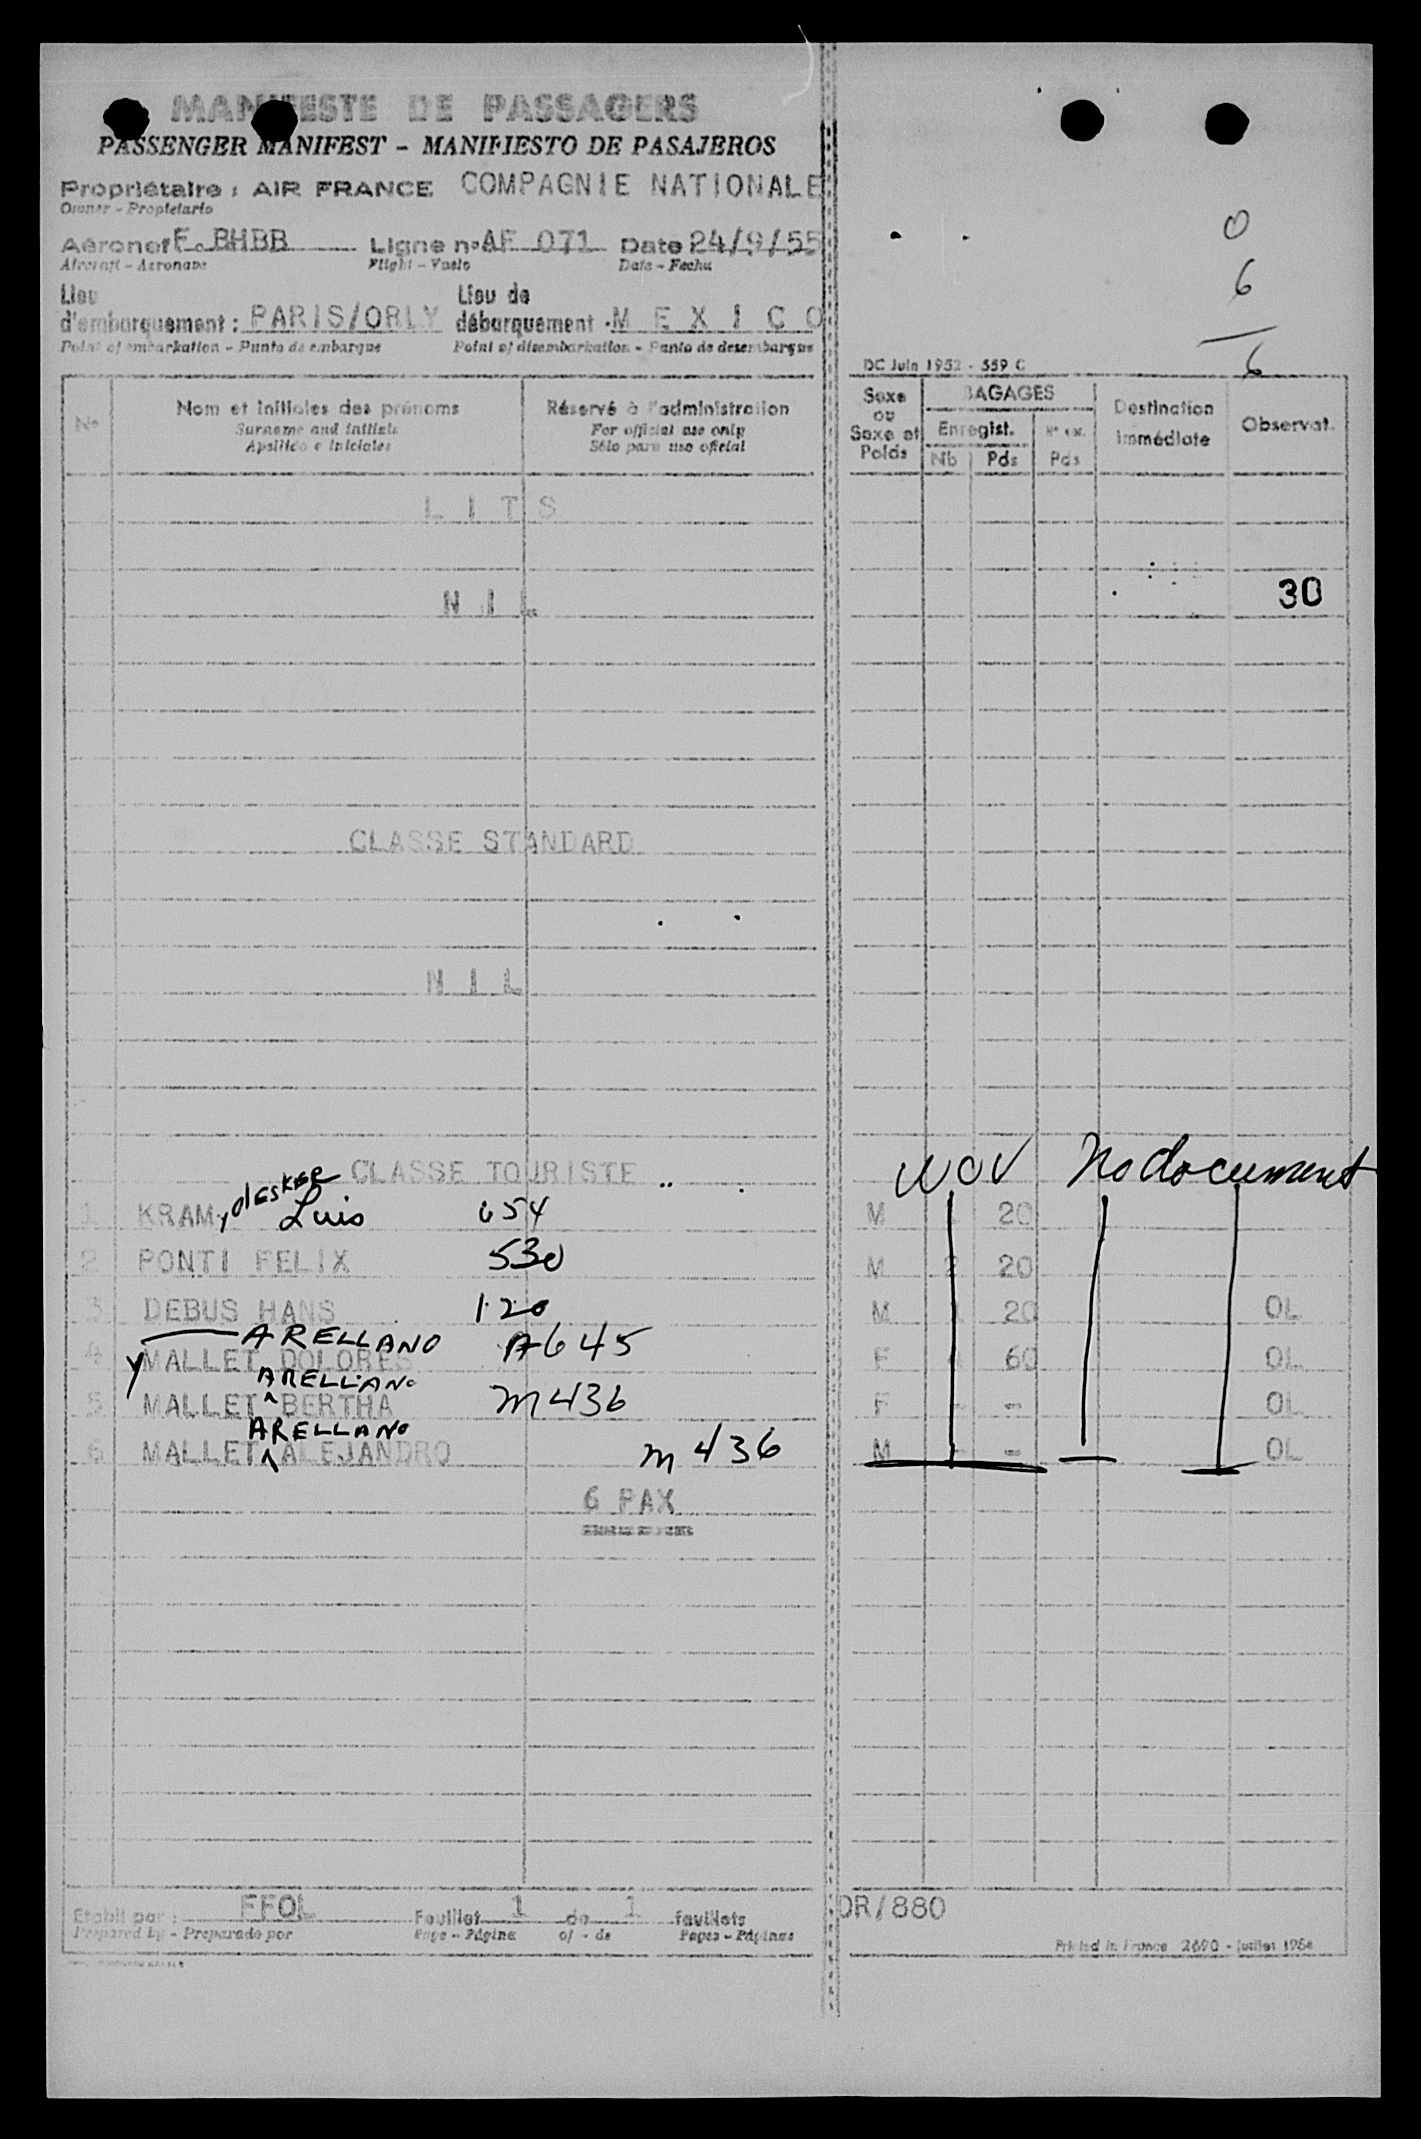 MANIFESTE DE PASSAGERS
PASSENGER MANIFEST - MANIFIESTO DE PASAJEROS
Propriétaire : AIR FRANCE COMPAGNIE NATIONALE
Owner - Propietario
Aéronef F. BHBB Ligne n° AF 071 Date 24/9/55
Aircraft - Aeronave Flight - Vuelo Date - Fecha
0
6
6
Lieu d'embarquement : PARIS/ORLY Lieu de débarquement . M E X I C O
Point of embarkation - Punto de embarque Point of disembarkation - Punto de desembarque
DC Juin 1952 - 559 C
N° Nom et initiales des prénoms Réservé à l'administration Sexe ou Sexe et Poids BAGAGES Destination immédiate Observat.
Surname and initials For official use only Enregist.
Apellido e iniciales Sólo para uso oficial Nb Pds Pds
L I T S
N I L 30
CLASSE STANDARD
N I L
CLASSE TOURISTE WOV No document
1 KRAM y Luis 654 M 20
2 PONTI FELIX 530 M 2 20
3 DEBUS HANS 120 M 20 OL
ARELLANO A645
4 y MALLET DOLORES F 60 OL
ARELLANO
5 MALLET BERTHA M436 F - - OL
ARELLANO
6 MALLET ALEJANDRO M436 M - - OL
6 PAX
Etabli par : FFOL Feuillet 1 de 1 feuillets OR/880
Prepared by - Preparado por Page - Página of - de Pages - Páginas
Printed in France 2690 - juillet 1954